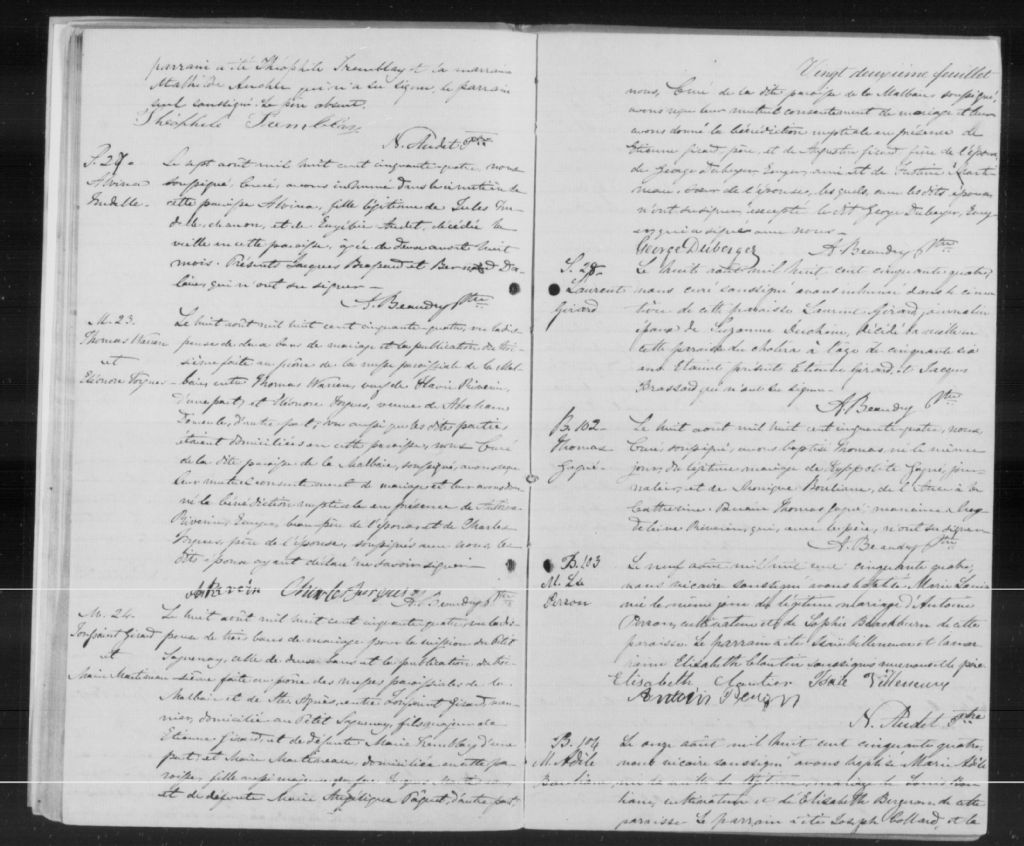 parrain a été Théophile Tremblay et la marraine
Mathilde qui n'a su signer, le parrain
seul soussigné. Le père absent.
Théophile Tremblay
N. Audet Ptre
S. 27-
Alvina
Le sept août mil huit cent cinquante quatre, nous
soussigné, Curé, avons inhumé dans le cimetière de
cette paroisse Alvina, fille légitime de Jules
et de Euzébie Audet, décédée la
veille en cette paroisse, âgée de deux ans et huit
mois. Présents Jacques Brassard et Bernard
qui n'ont su signer -
A. Beaudry Ptre
M. 23.
Thomas Warren
et
Eléonore Forgues -
Le huit août mil huit cent cinquante quatre, vu la dis-
pense de deux bans de mariage et la publication du troi-
sième faite au prône de la messe paroissiale de la Mal-
baie, entre Thomas Warren, veuf de Flavie Riverin,
d'une part; et Eléonore Forgues, veuve de Abraham
d'autre part; vu aussi que les dites parties
étaient domiciliées en cette paroisse, nous Curé
de la dite paroisse de la Malbaie, soussigné, avons reçu
leur mutuel consentement de mariage et leur avons don-
né la bénédiction nuptiale en présence de
Riverin, Ecuyer, beau-père de l'époux, et de Charles
Forgues, père de l'épouse, soussignés avec nous les
dits époux ayant déclaré ne savoir signer -
Riverin Charles Forgues
A. Beaudry Ptre
M. 24.
Toussaint Girard
et
Marie Martineau
Le huit août mil huit cent cinquante quatre, vu la dis-
pense de trois bans de mariage pour la mission du Petit
Saguenay, celle de deux bans et la publication du troi-
sième faite au prône des messes paroissiales de la
Malbaie et de Ste. Agnès, entre Toussaint Girard,
domicilié au Petit Saguenay, fils majeur de
Etienne Girard et de défunte Marie Tremblay d'une
part; et Marie Martineau, domiciliée en cette pa-
roisse, fille aussi majeure de feu
et de défunte Marie Angélique Pâquet, d'autre part
Vingt deuxième feuillet
nous, Curé de la dite paroisse de la Malbaie soussigné,
avons reçu leur mutuel consentement de mariage et leur
avons donné la bénédiction nuptiale en présence de
Etienne Girard père, et de Augustin Girard frère de l'époux,
de George Duberger Ecuyer, ami et de Justine Marti-
neau, soeur de l'épouse, lesquels, avec les dits époux
n'ont su signer excepté le dit George Duberger, Ecuy-
er, qui a signé avec nous -
George Duberger
A. Beaudry Ptre
S. 28-
Laurent
Girard
Le huit août mil huit cent cinquante quatre,
nous curé soussigné avons inhumé dans le cime-
tière de cette paroisse Laurent Girard, journalier
époux de Suzanne Duchène, décédé la veille en
cette paroisse du choléra à l'âge de cinquante six
ans Etaient présents Etienne Girard et Jacques
Brassard qui n'ont su signer -
A. Beaudry Ptre
B. 102-
Thomas
Gagné-
Le huit août mil huit cent cinquante quatre, nous
Curé soussigné, avons baptisé Thomas, né le même
jour, du légitime mariage de Hyppolite Gagné, jour-
nalier, et de Monique Boulianne, de l'Anse à la
Catherine. Parrain Thomas Gagné: marraine
Riverin, qui, avec le père, n'ont su signer
A. Beaudry Ptre
B. 103
M. Ls
Perron
Le neuf août mil huit cent cinquante quatre,
nous vicaire soussigné avons baptisé Marie Louis
né le même jour du légitime mariage d'Antoine
Perron, cultivateur et de Sophie Blackburn de cette
paroisse. Le parrain a été Isaïe Villeneuve et la mar-
raine Elisabeth Cloutier soussignés avec nous et le père
Elisabeth Cloutier Isaïe Villeneuve
Antoine Perron
N. Audet Ptre
B. 104
M. Adèle
Boulianne
Le onze août mil huit cent cinquante quatre,
nous vicaire soussigné avons baptisé Marie Adèle
du légitime mariage de Louis Bou-
lianne, cultivateur et de Elisabeth Bergeron de cette
paroisse. Le parrain a été Joseph Collard, et la